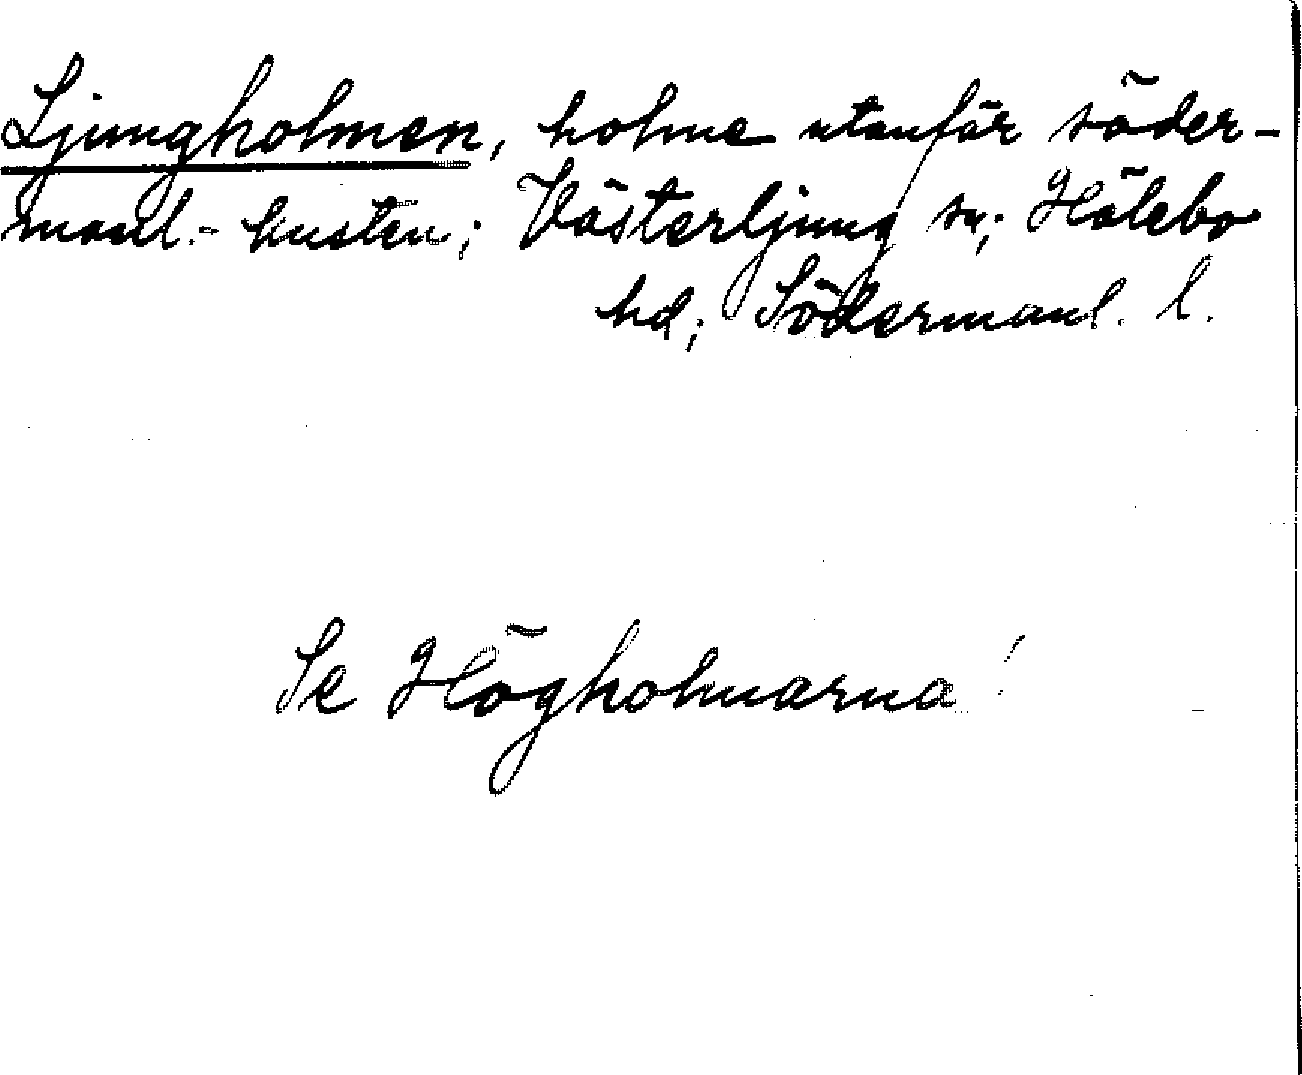 Ljungholmen, holme utanför söder-
manl.- kusten; Västerljung sn; Hölebo
hd; Södermanl. l.
Se Högholmarna!